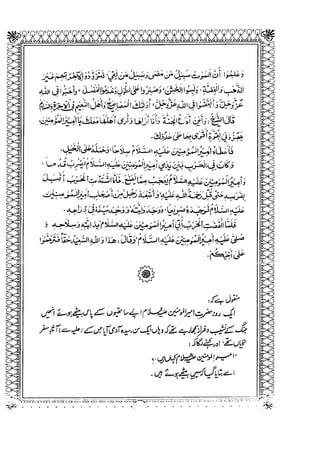 وَعَلِمُوا أَنَّ الْمَوْتَ سَبِيلُ مَنْ مَضَى وَسَبِيلُ مَنْ بَقِيَ، فَتَزَوَّدُوا لِآخِرَتِهِمْ غَيْرَ
الذَّهَبِ وَالْفِضَّةِ، وَلَبِسُوا الْخَشِنَ، وَصَبَرُوا عَلَى
اللهِ
عَزَّ وَجَلَّ وَأَبْغَضُوا فِي اللهِ عَزَّ وَجَلَّ، أُولَئِكَ الْمَصَابِيحُ وَأَهْلُ النَّعِيمِ فِي الْآخِرَةِ وَالسَّلَامُ
قَالَ الشَّيْخُ: وَأَيْنَ أَدَعُ الْجَنَّةَ وَأَنَا أَرَاهَا وَأَرَى أَهْلَهَا مَعَكَ يَا أَمِيرَ الْمُؤْمِنِينَ،
جَهِّزْنِي بِقُوَّةٍ أَقْوَى بِهَا عَلَى عَدُوِّكَ.
فَأَعْطَاهُ أَمِيرُ الْمُؤْمِنِينَ عَلَيْهِ السَّلَامُ سِلَاحًا، وَحَمَلَهُ عَلَى الْخَيْلِ.
وَكَانَ فِي الْحَرْبِ بَيْنَ يَدَيْ أَمِيرِ الْمُؤْمِنِينَ عَلَيْهِ السَّلَامُ يَضْرِبُ قُدُمًا،
وَأَمِيرُ الْمُؤْمِنِينَ عَلَيْهِ السَّلَامُ يَعْجَبُ مِمَّا يَصْنَعُ. فَلَمَّا اشْتَدَّتِ الْحَرْبُ أَقْدَمَ
فَرَسَهُ حَتَّى قُتِلَ رَحْمَةُ اللهِ عَلَيْهِ وَأَتْبَعَهُ رَجُلٌ مِنْ أَصْحَابِ أَمِيرِ الْمُؤْمِنِينَ
عَلَيْهِ السَّلَامُ فَوَجَدَهُ صَرِيعًا، وَوَجَدَ دَابَّتَهُ وَوَجَدَ سَيْفَهُ فِي ذِرَاعِهِ.
فَلَمَّا انْقَضَتِ الْحَرْبُ أُتِيَ أَمِيرُ الْمُؤْمِنِينَ عَلَيْهِ السَّلَامُ بِدَابَّتِهِ وَسِلَاحِهِ وَ
صَلَّى عَلَيْهِ أَمِيرُ الْمُؤْمِنِينَ عَلَيْهِ السَّلَامُ وَقَالَ: هَذَا وَاللهِ السَّعِيدُ حَقًّا فَتَرَحَّمُوا
عَلَى أَخِيكُمْ.
منقول ہے کہ:
ایک روز حضرت امیر المومنین علیہ السلام اپنے ساتھیوں کے پاس بیٹھے ہوئے انھیں
جنگ کے نشیب و فراز سمجھا رہے تھے کہ وہاں ایک سن رسیدہ آدمی آیا جس کے حلیہ سے آثار سفر
نمایاں تھے، اور کہنے لگا کہ:
امیر المومنین علیہ السلام کہاں ہیں؟
اسے بتایا گیا کہ یہیں بیٹھے ہوئے ہیں۔